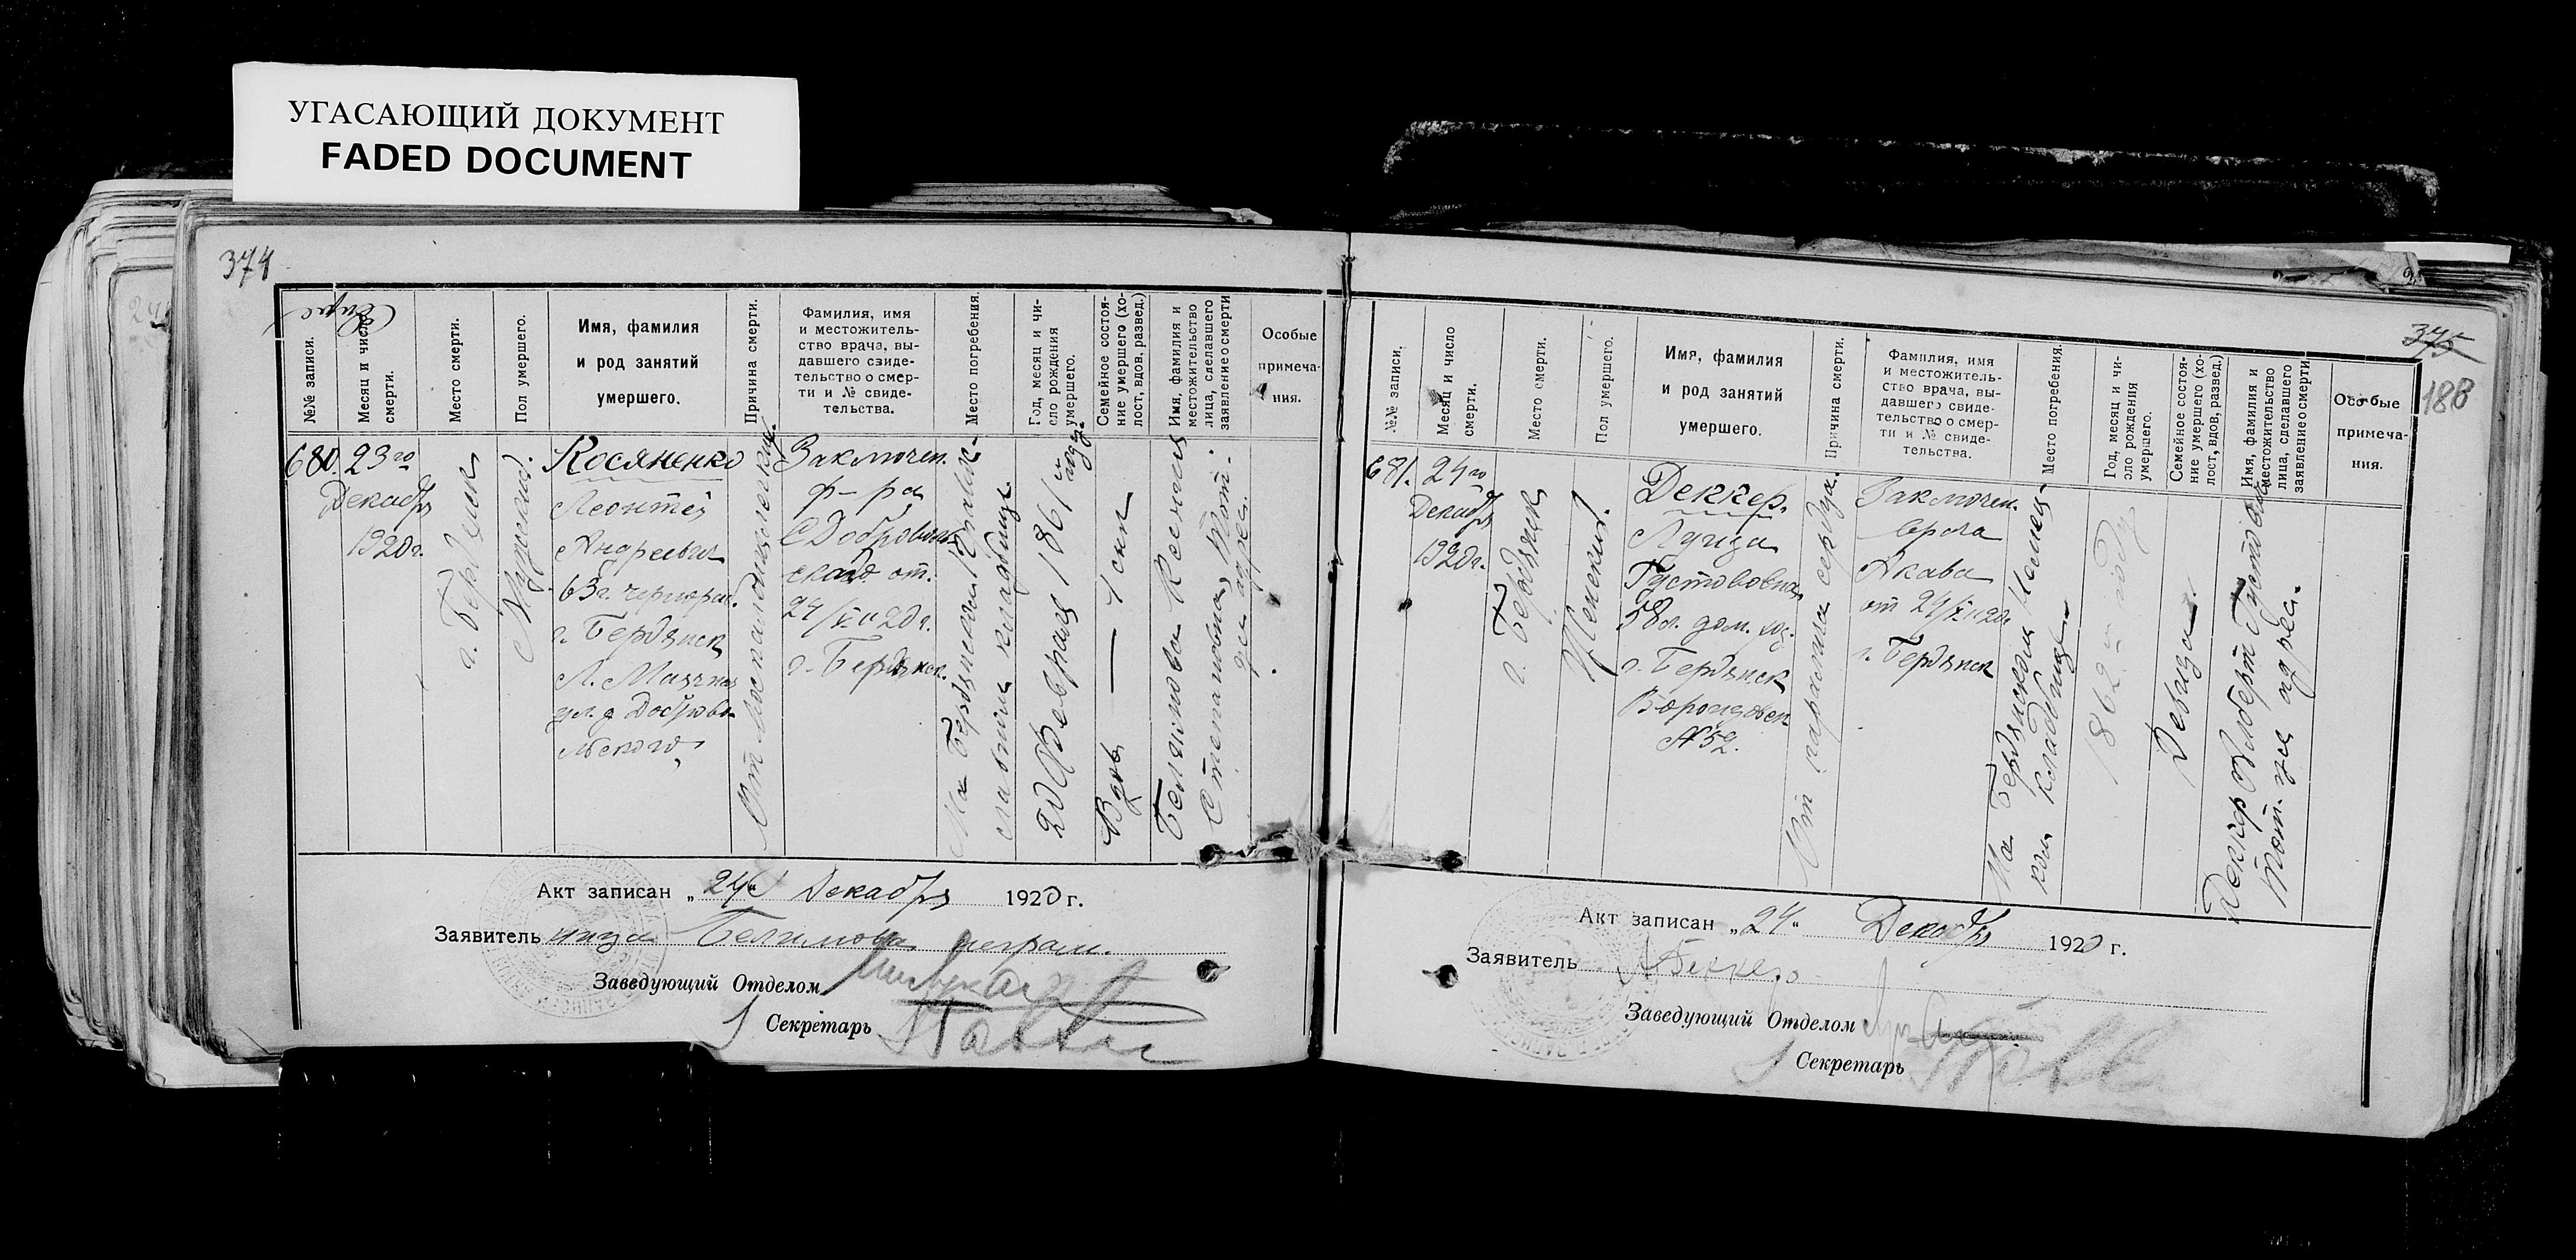 УГАСАЮЩИЙ ДОКУМЕНТ
FADED DOCUMENT
374
№№ записи.
Месяц и число смерти.
Место смерти.
Пол умершего.
Имя, фамилия
и род занятий
умершего.
Причина смерти.
Фамилия, имя
и местожитель-
ство врача, вы-
давшего свиде-
тельство о смер-
ти и № свиде-
тельства.
Место погребения.
Год, месяц и чи-
сло рождения
умершего.
Семейное состоя-
ние умершего (хо-
лост, вдов, развед.)
Имя, фамилия и
местожительство
лица, сделавшего
заявление о смерти
Особые
примеча-
ния.
680.
23го
Декабр
1920г.
г. Бердянск
Мужской.
Косяненко
Леонтей
Андреевич
63г. чернораб.
г. Бердянск
Л.
ул. д Доброво
льского
От
Заключен.
ф-ра
Доброволь
ская от.
24/XII 20г.
г. Бердянск.
На Бердянском Правос-
лавном кладбище
20 Февраля 1861 году.
Вдов
Белимова Ксения
Степановна, Тот-
же адрес.
Акт записан „24“ Декабр 1920 г.
Заявитель Белимова неграм.
Заведующий Отделом
Секретарь
375
188
№№ записи.
Месяц и число
смерти.
Место смерти.
Пол умершего.
Имя, фамилия
и род занятий
умершего.
Причина смерти.
Фамилия, имя
и местожитель-
ство врача, вы-
давшего свиде-
тельство о смер-
ти и № свиде-
тельства.
Место погребения.
Год, месяц и чи-
сло рождения
умершего.
Семейное состоя-
ние умершего (хо-
лост, вдов, развед.)
Имя, фамилия и
местожительство
лица, сделавшего
заявление о смерти
Особые
примеча-
ния.
681.
24го
Декабр
1920г.
г. Бердянск
Женский.
Деккер.
Луиза
Густововна
58л. дом. хоз.
г. Бердянск
Воронцовск.
№52.
От паралича сердца.
Заключен.
врача
Акава
от 24/XII 20г.
г. Бердянск
На Бердянском Немец-
ком кладбище
1862 году
Девица.
Деккер Альберт Густович
Тот-же адрес.
Акт записан „24“ Декабр 1920 г.
Заявитель
Заведующий Отделом
Секретарь